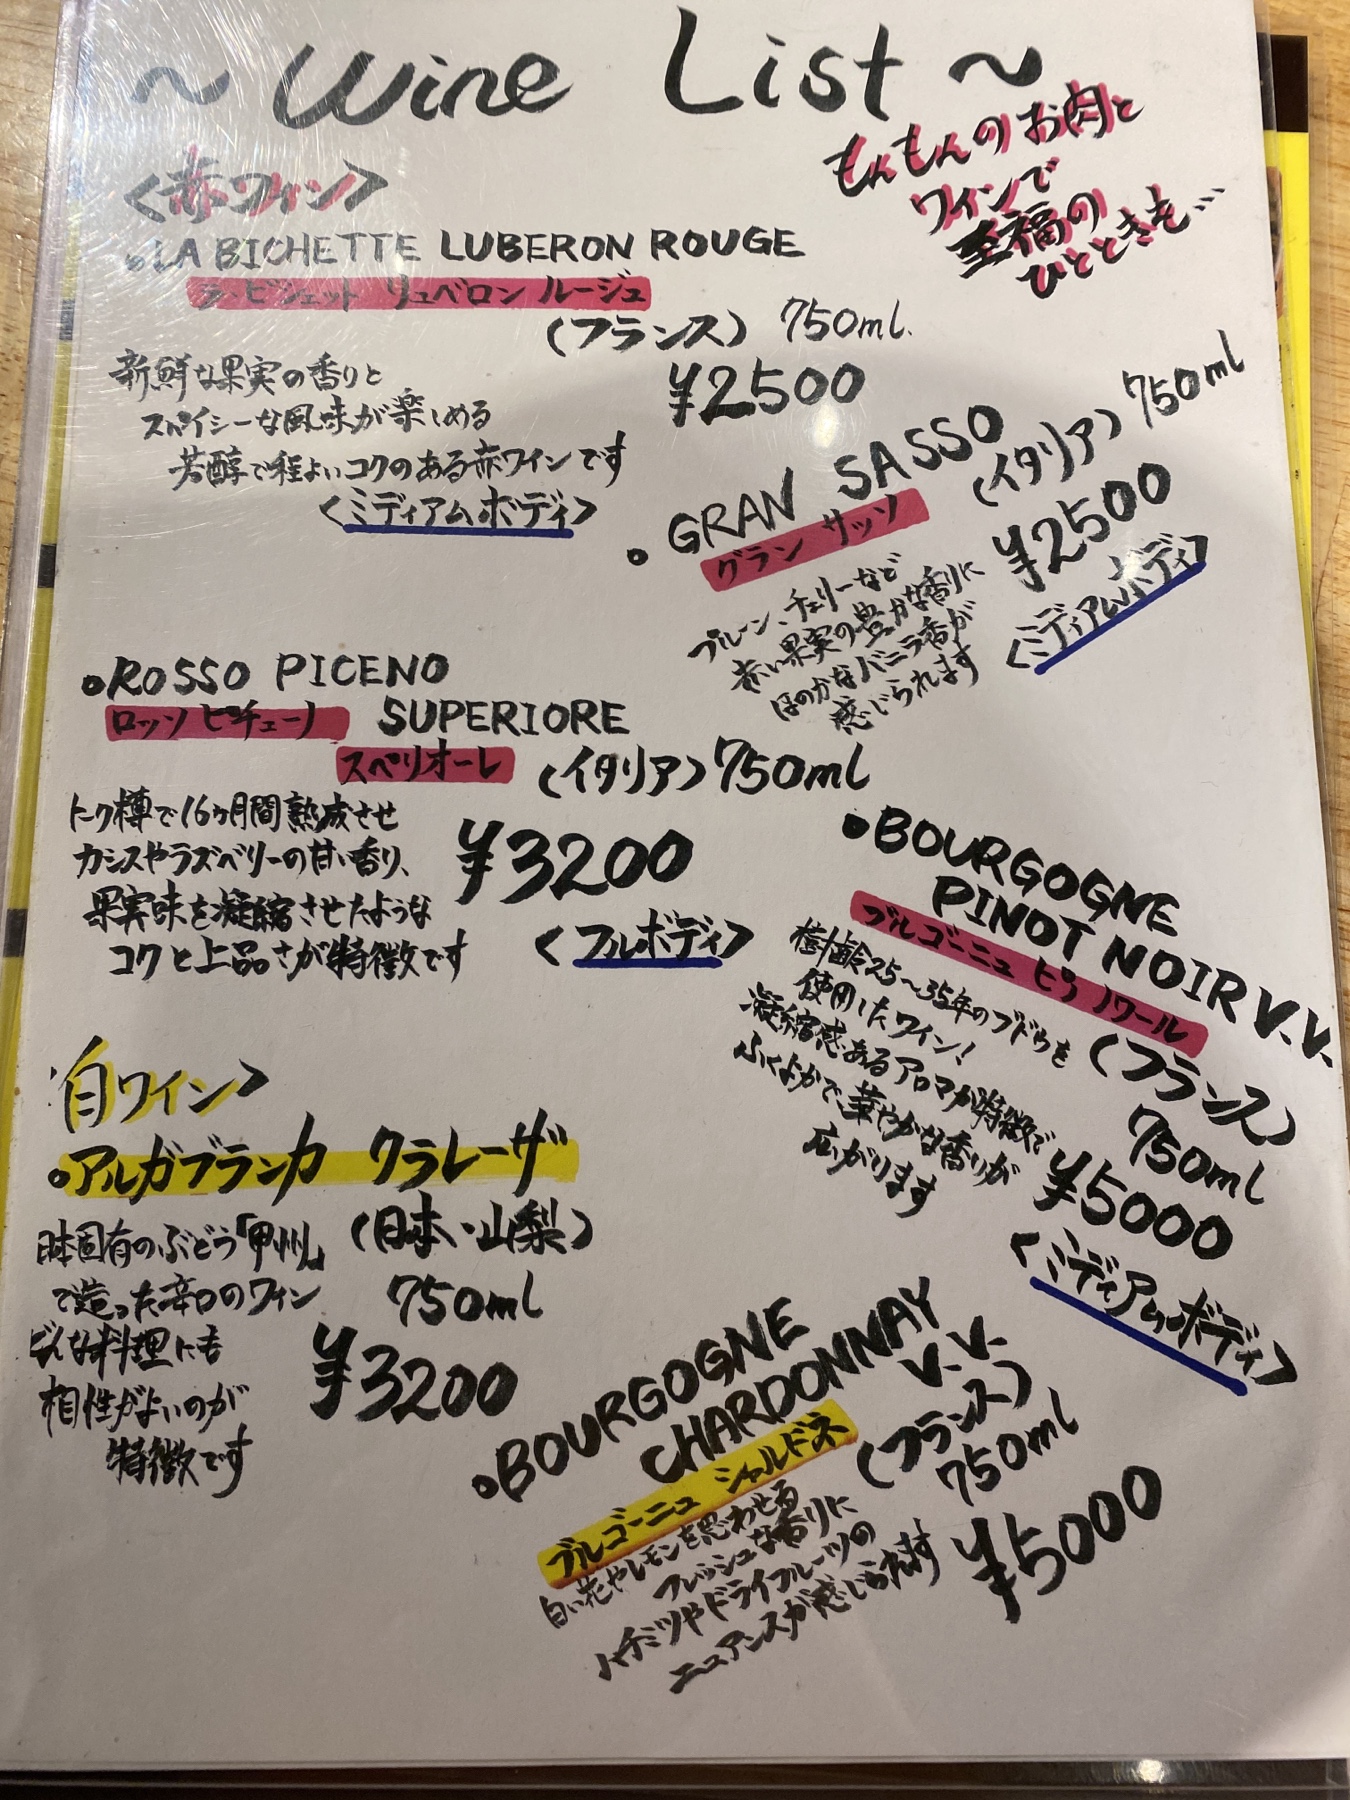 ～ Wine List ～
もんもんのお肉と
ワインで
至福の
ひとときを…
<赤ワイン>
LA BICHETTE LUBERON ROUGE
ラ・ビシェット リュベロン ルージュ
(フランス) 750ml.
¥2500
新鮮な果実の香りと
スパイシーな風味が楽しめる
芳醇で程よいコクのある赤ワインです
<ミディアムボディ>
GRAN SASSO
グラン サッソ
(イタリア) 750ml
¥2500
<ミディアムボディ>
プルーン、チェリーなど
赤い果実の豊かな香りに
ほのかなバニラ香が
感じられます
ROSSO PICENO
ロッソ ピチェーノ
SUPERIORE
スペリオーレ
(イタリア) 750ml
¥3200
<フルボディ>
トーク樽で16ヶ月間熟成させ
カシスやラズベリーの甘い香り、
果実味を凝縮させたような
コクと上品さが特徴です
BOURGOGNE
PINOT NOIR V.V.
ブルゴーニュ ピノノワール
(フランス)
750ml
¥5000
<ミディアムボディ>
樹齢25～35年のブドウを
使用したワイン!
凝縮感あるアロマが特徴で
ふくよかで、華やかな香りが
広がります
白ワイン>
アルガブランカ クラレーザ
(日本・山梨)
750ml
¥3200
日本固有のぶどう「甲州」
で造った辛口のワイン
どんな料理にも
相性がよいのが
特徴です
BOURGOGNE
CHARDONNAY
V.V.
ブルゴーニュ シャルドネ
(フランス)
750ml
¥5000
白い花やレモンを思わせる
フレッシュな香りに
ハチミツやドライフルーツの
ニュアンスが感じられます